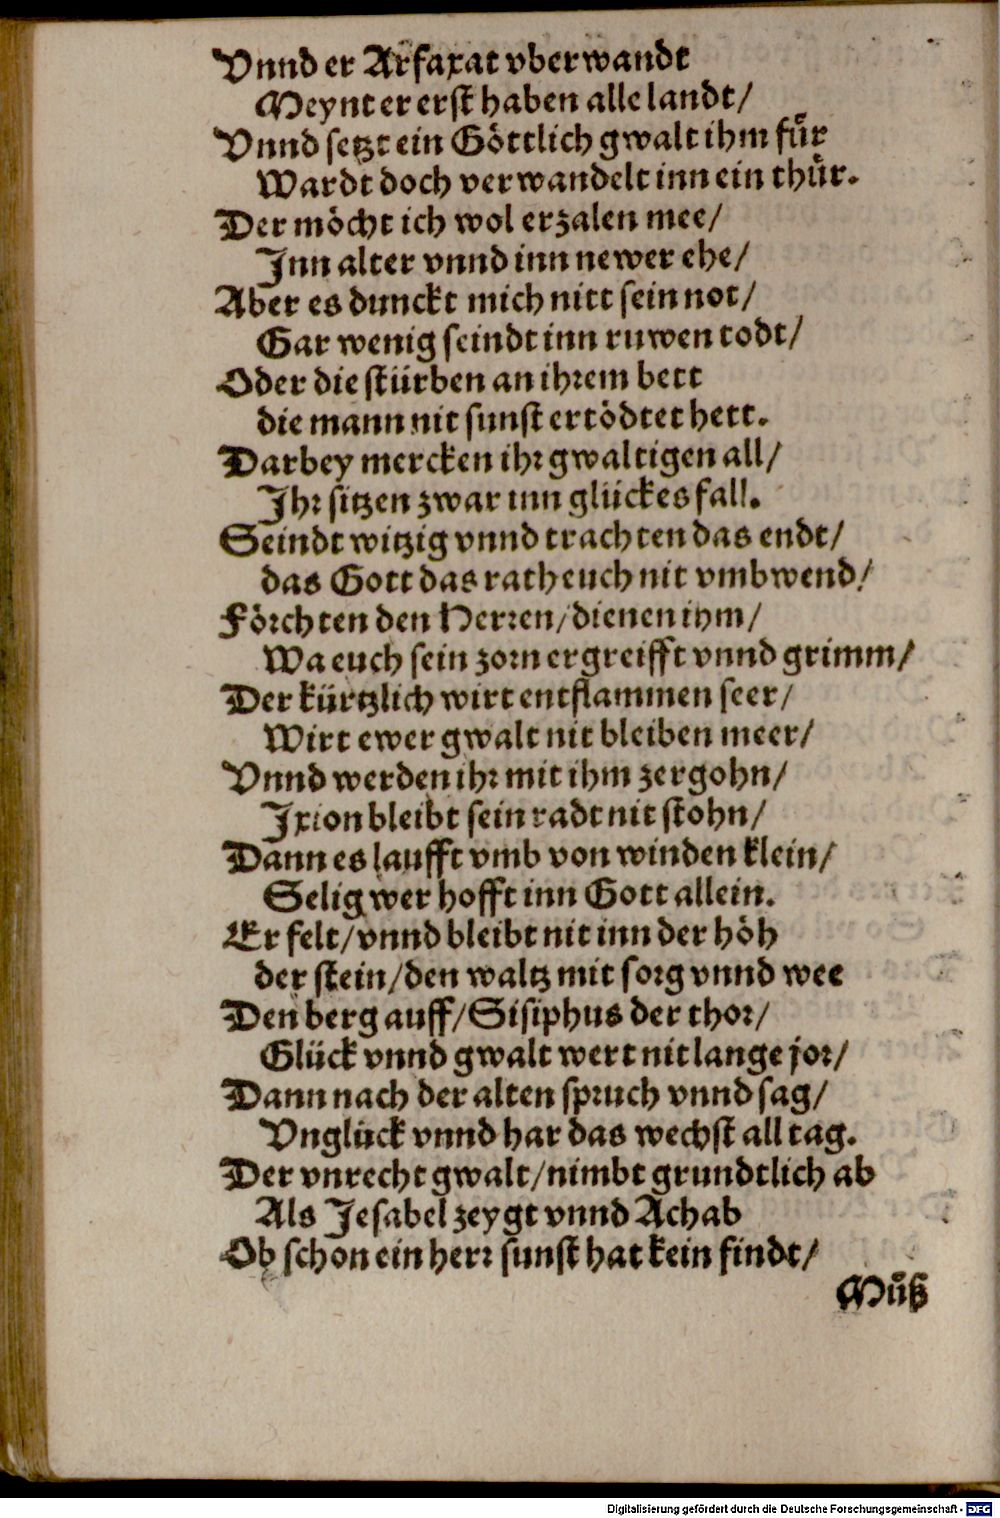 Vnnd er Arfaxat vberwandt
Meynt er erst haben alle landt/
Vnnd setzt ein Göttlich gwalt ihm fuͤr
Wardt doch verwandelt inn ein thuͤr.
Der möcht ich wol erzalen mee/
Inn alter vnnd inn newer ehe/
Aber es dunckt mich nitt sein not/
Gar wenig seindt inn ruwen todt/
Oder die stürben an ihrem bett
die mann nit sunst ertödtet hett.
Darbey mercken ihr gwaltigen all/
Ihr sitzen zwar inn glückes fall.
Seindt witzig vnnd trachten das endt/
das Gott das rath euch nit vmbwend/
Förchten den Herren/dienen ihm/
Wa euch sein zorn ergreifft vnnd grimm/
Der kürtzlich wirt entflammen seer/
Wirt ewer gwalt nit bleiben meer/
Vnnd werden ihr mit ihm zergohn/
Ixion bleibt sein radt nit stohn/
Dann es laufft vmb von winden klein/
Selig wer hofft inn Gott allein.
Er felt/vnnd bleibt nit inn der höh
der stein/den waltz mit sorg vnnd wee
Den berg auff/Sisiphus der thor/
Glück vnnd gwalt wert nit lange jor/
Dann nach der alten spruch vnnd sag/
Vnglück vnnd har das wechst all tag.
Der vnrecht gwalt/nimbt grundtlich ab
Als Jesabel zeygt vnnd Achab
Ob schon ein herr sunst hat kein findt/
Muͤß
Digitalisierung gefördert durch die Deutsche Forschungsgemeinschaft - DFG